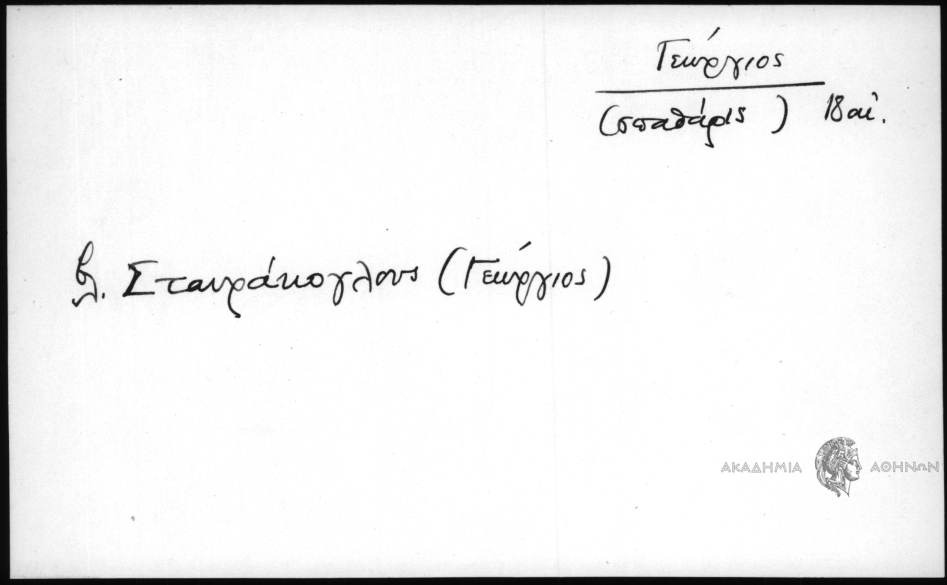 Γεώργιος
(σπαθάρις) 18 αἰ.
βλ. Σταυράκογλους (Γεώργιος)
ΑΚΑΔΗΜΙΑ ΑΘΗΝΩΝ